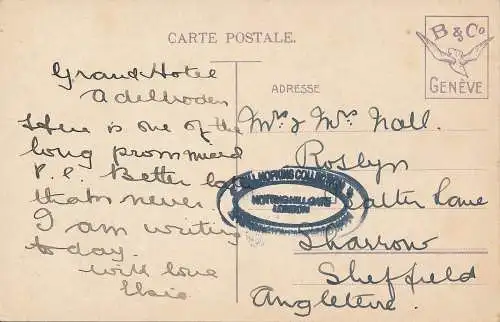 CARTE POSTALE.
B & Co
GENÈVE
Grand Hotel
Adelboden
Here is one of the
long prommised
P.C. Better late
than never.
I am writing
today.
with love
Elsie
ADRESSE
Mr & Mrs Nall.
Roslyn
Psalter Lane
Sharrow
Sheffield
Angleterre.
HOPKINS COLLECTION
NOTTING HILL GATE
LONDON